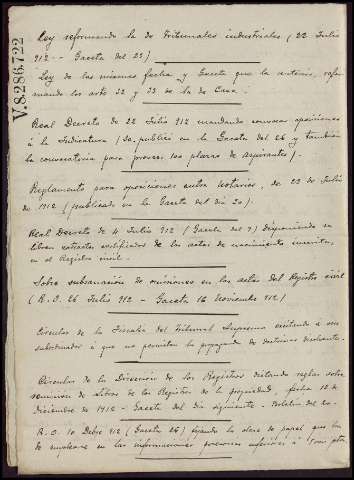 V.8286.722
Ley reformando la de Tribunales industriales (22 Julio
912 -- Gaceta del 23)
Ley de la misma fecha y Gaceta que la anterior, refor-
mando los arts 32 y 33 de la de Caza.
Real Decreto de 22 Julio 912 mandando convocar oposiciones
á la Judicatura (Se publicó en la Gaceta del 26 y también
la convocatoria para proveer 100 plazas de aspirantes).
Reglamento para oposiciones entre notarios, de 23 de Julio
de 1912 (publicado en la Gaceta del dia 30).
Real Decreto de 4 Julio 912 (Gaceta del 7) disponiendo se
libren extractos certificados de las actas de nacimiento inscritas,
en el Registro civil.
Sobre subsanación de omisiones en las actas del Registro civil
(R.O. 26 Julio 912 - Gaceta 16 Noviembre 912)
Circular de la Fiscalía del Tribunal Supremo excitando a sus
subordinados á que no permitan la propaganda de doctrinas
Circular de la Dirección de los Registros dictando reglas sobre
remisión de libros de los Registros de la propiedad - fecha 12 de
Diciembre de 1912 - Gaceta del dia siguiente - Boletin del 20.
R.O. 10 Dcbre 912 (Gaceta 26) fijando la clase de papel que ha
de emplearse en las informaciones inferiores á ptas